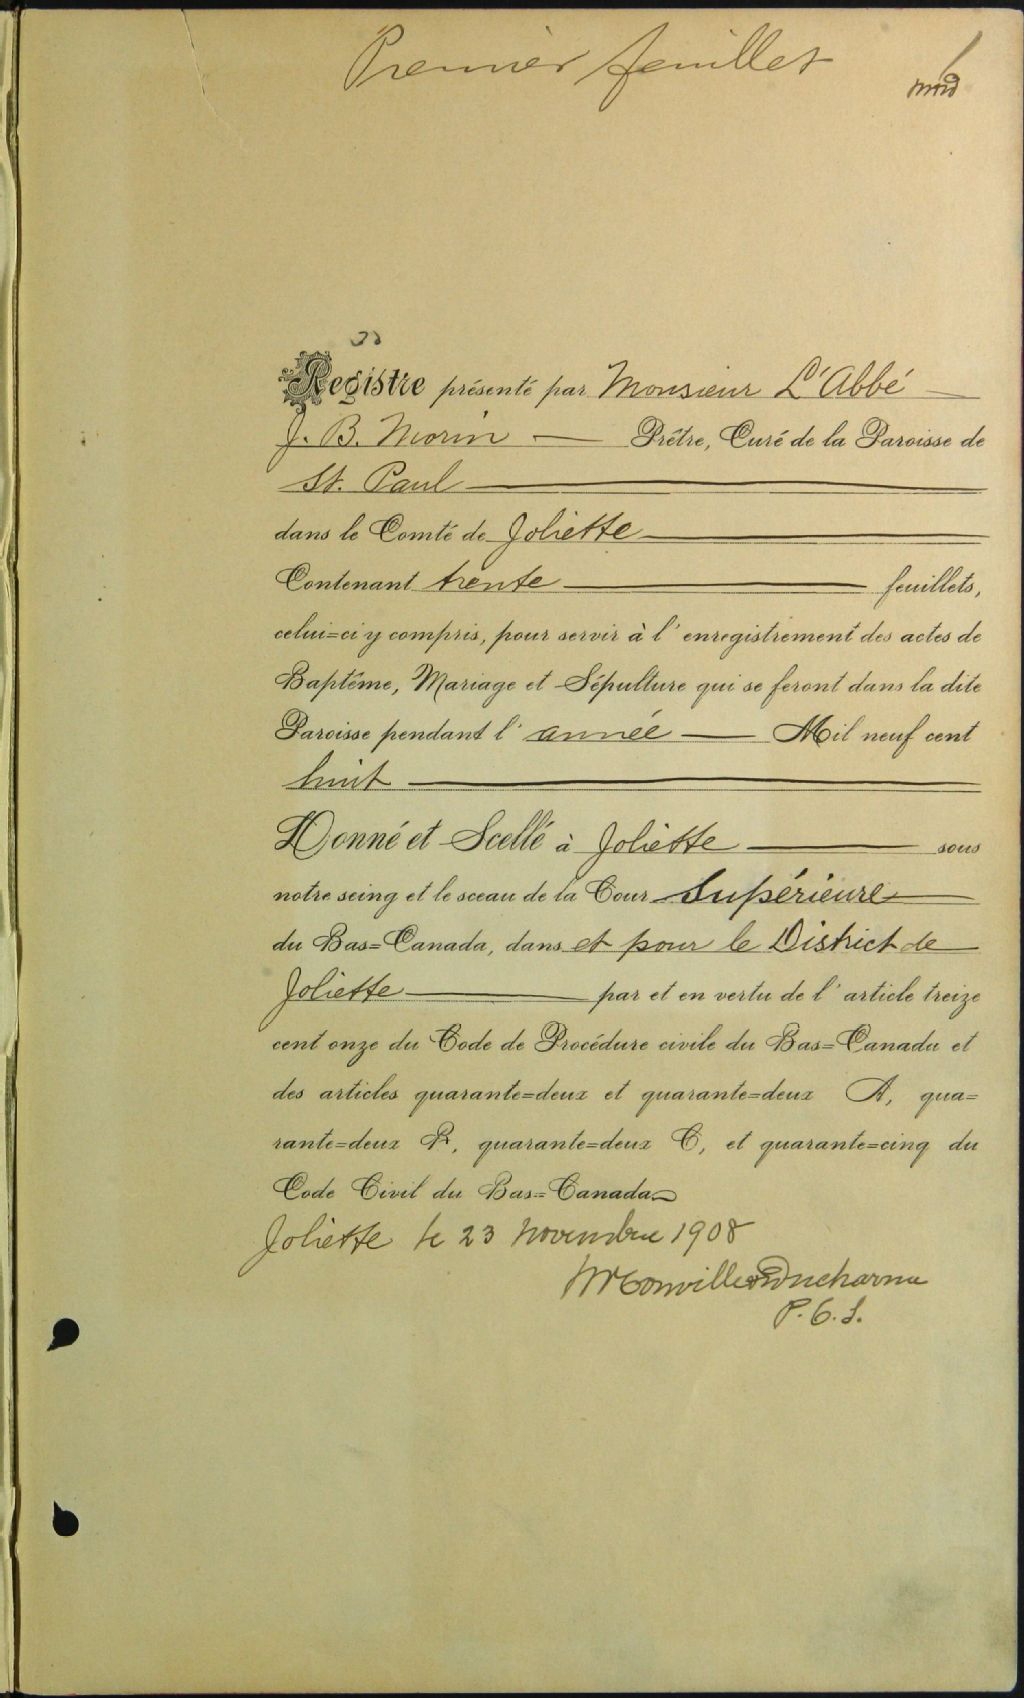 Premier feuillet
1
Registre présenté par Monsieur L'Abbé
J. B. Morin Prêtre, Curé de la Paroisse de
St. Paul
dans le Comté de Joliette
Contenant trente feuillets,
celui=ci y compris, pour servir à l'enregistrement des actes de
Baptême, Mariage et Sépulture qui se feront dans la dite
Paroisse pendant l'année Mil neuf cent
huit
Donné et Scellé à Joliette sous
notre seing et le sceau de la Cour Supérieure
du Bas=Canada, dans et pour le District de
Joliette par et en vertu de l'article treize
cent onze du Code de Procédure civile du Bas=Canada et
des articles quarante=deux et quarante=deux A, qua=
rante=deux B, quarante=deux C, et quarante=cinq du
Code Civil du Bas=Canada
Joliette le 23 Novembre 1908
Ducharme
P. C. S.